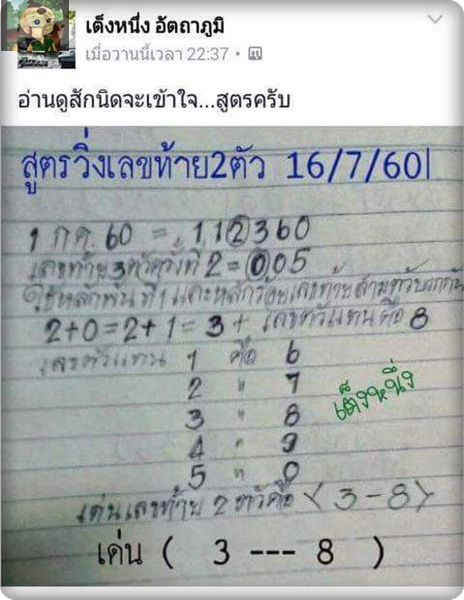 เต็งหนึ่ง อัตถาภูมิ
เมื่อวานนี้เวลา 22:37
อ่านดูสักนิดจะเข้าใจ...สูตรครับ
สูตรวิ่งเลขท้าย2ตัว 16/7/60
1 กค. 60 = 112360
เลขท้าย 3 ตัวครั้งที่ 2 = 005
ดูหลักพันที่ 1 และหลักร้อยเลขท้ายสามตัวบวกกัน
2+0=2+1=3+ เลขตัวแทนคือ 8
เลขตัวแทน 1 คือ 6
2 " 7
3 " 8
4 " 9
5 " 0
เต็งหนึ่ง
เด่นเลขท้าย 2 ตัวคือ <3-8>
เด่น ( 3 --- 8 )